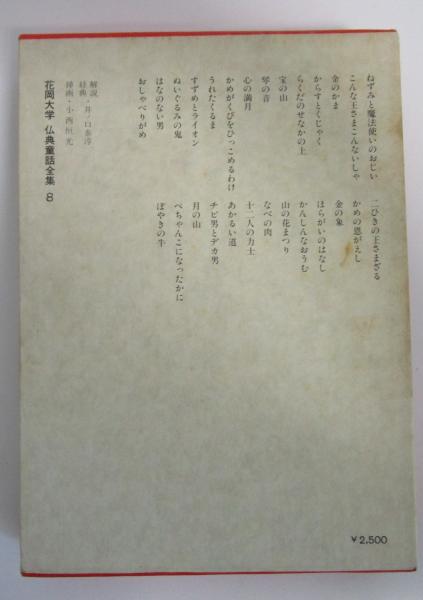 ねずみと魔法使いのおじい
こんな王さまこんないしゃ
金のかま
からすとくじゃく
らくだのせなかの上
宝の山
琴の音
心の満月
かめがくびをひっこめるわけ
うれたくるま
すずめとライオン
ぬいぐるみの鬼
はなのない男
おしゃべりがめ
二ひきの王さまざる
かめの恩がえし
金の象
ほらがいのはなし
かんしんなおうむ
山の花まつり
なべの肉
十二人の力士
あかるい道
チビ男とデカ男
月の山
ぺちゃんこになったかに
ぼやきの牛
解説・井ノ口泰淳
経典
挿画・小西恒光
花岡大学 仏典童話全集 8
¥2,500